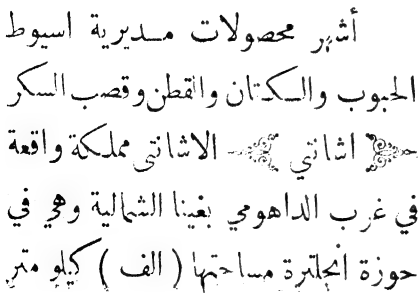 أشهر محصولات مديرية اسيوط
الحبوب والكتان والقطن وقصب السكر
اشانتي الاشانتي مملكة واقعة
في غرب الداهومي بغينا الشمالية وهي في
حوزة انجلترة مساحتها ( الف ) كيلو متر